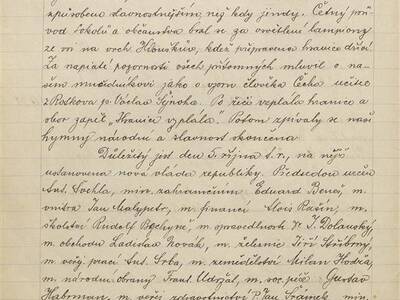 způsobem slavnostnějším, než kdy jindy. Četný prů-
vod sokolů a občanstva bral se za osvětlení lampiony
ze vsi na vrch, kdež připravena hranice dříví.
Za napiaté pozornosti všech přítomných mluvil o na-
šem mučedníkovi jako o vzoru člověka Čecha učitel
z Rotkova p. Václav Sýkora. Po řeči vzplála hranice a
sbor zapěl "Hranice vzplála". Potom zpívaly se naše
hymny národní a slavnost skončena.
Důležitý jest den 5. října t. r., na nějž
ustanovena nová vláda republiky. Předsedou určen
Ant. Švehla, min. zahraničním Eduard Beneš, m.
vnitra Jan Malypetr, m. financí Alois Rašín, m.
školství Rudolf Bechyně, m. spravedlnosti Dr. J. Dolanský,
m. obchodu Ladislav Novák, m. železnic Jiří Stříbrný,
m. veřej. prací Ant. Srba, m. zemědělství Milan Hodža,
m. národní obrany Frant. Udržal, m. soc. péče Gustav
Haberman, m. veřej. zdravotnictví P. Jan Šrámek, min.